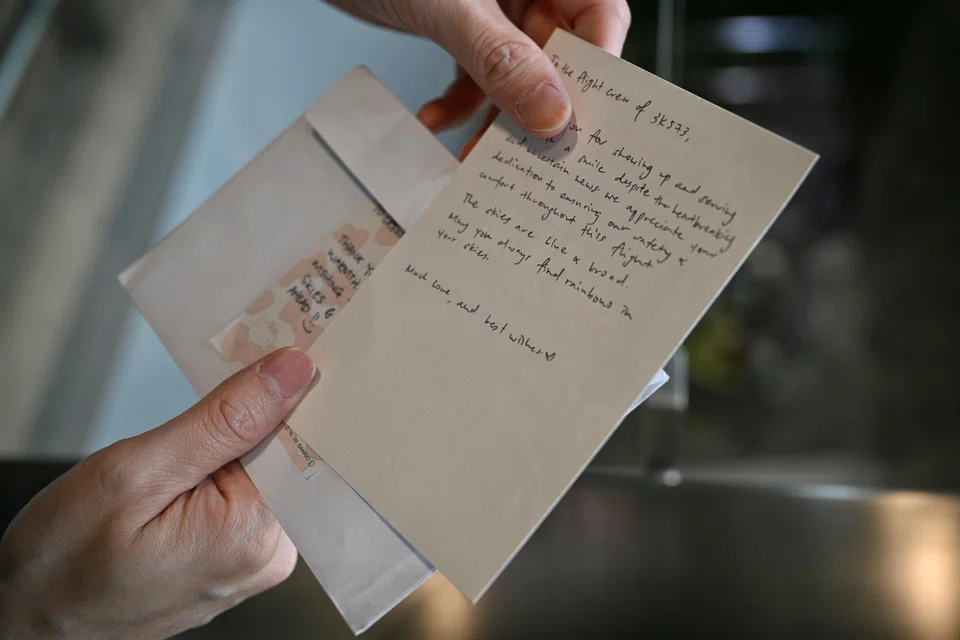 To the flight crew of 3K573,
for showing up and serving
a smile despite the heartbreaking
and uncertain news. We appreciate your
dedication to ensuring our safety &
comfort throughout this flight
The skies are blue & broad.
May you always find rainbows in
your skies.
Much love, and best wishes
THANK
WISHING
SKIES
AHEAD!!